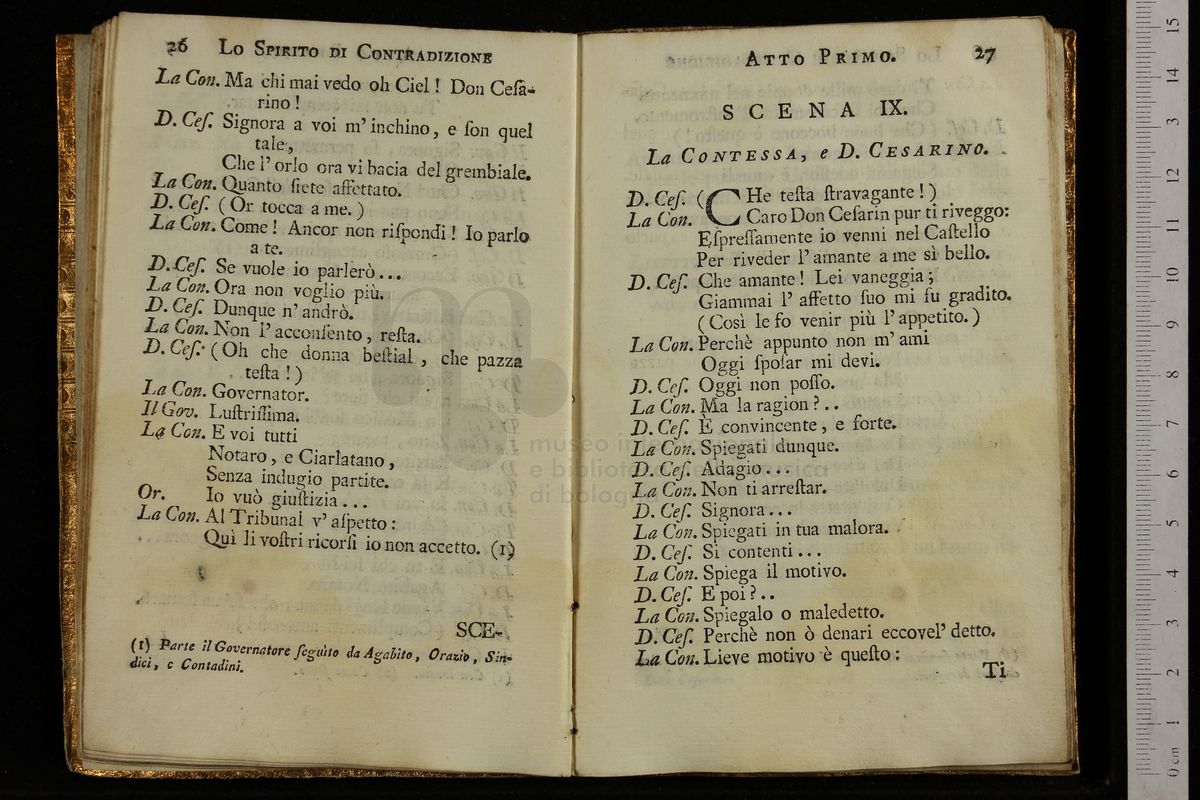 26 Lo Spirito di Contradizione
La Con. Ma chi mai vedo oh Ciel! Don Ceſa-
rino!
D. Ceſ. Signora a voi m'inchino, e ſon quel
tale,
Che l'orlo ora vi bacia del grembiale.
La Con. Quanto ſiete affettato.
D. Ceſ. (Or tocca a me.)
La Con. Come! Ancor non riſpondi! Io parlo
a te.
D. Ceſ. Se vuole io parlerò...
La Con. Ora non voglio più.
D. Ceſ. Dunque n'andrò.
La Con. Non l'acconſento, reſta.
D. Ceſ. (Oh che donna beſtial, che pazza
teſta!)
La Con. Governator.
Il Gov. Luſtriſſima.
La Con. E voi tutti
Notaro, e Ciarlatano,
Senza indugio partite.
Or. Io vuò giuſtizia...
La Con. Al Tribunal v'aſpetto:
Quì li voſtri ricorſi io non accetto. (1)
SCE-
(1) Parte il Governatore ſeguìto da Agabito, Orazio, Sin-
dici, e Contadini.
Atto Primo. 27
SCENA IX.
La Contessa, e D. Cesarino.
D. Ceſ. (CHe teſta ſtravagante!)
La Con. Caro Don Ceſarin pur ti riveggo:
Eſpreſſamente io venni nel Caſtello
Per riveder l'amante a me sì bello.
D. Ceſ. Che amante! Lei vaneggia;
Giammai l'affetto ſuo mi fu gradito.
(Così le fo venir più l'appetito.)
La Con. Perchè appunto non m'ami
Oggi ſpoſar mi devi.
D. Ceſ. Oggi non poſſo.
La Con. Ma la ragion?..
D. Ceſ. È convincente, e forte.
La Con. Spiegati dunque.
D. Ceſ. Adagio...
La Con. Non ti arreſtar.
D. Ceſ. Signora...
La Con. Spiegati in tua malora.
D. Ceſ. Si contenti...
La Con. Spiega il motivo.
D. Ceſ. E poi?..
La Con. Spiegalo o maledetto.
D. Ceſ. Perchè non ò denari eccovel' detto.
La Con. Lieve motivo è queſto:
Ti
museo
e biblio
di bologna
0 cm 1 2 3 4 5 6 7 8 9 10 11 12 13 14 15